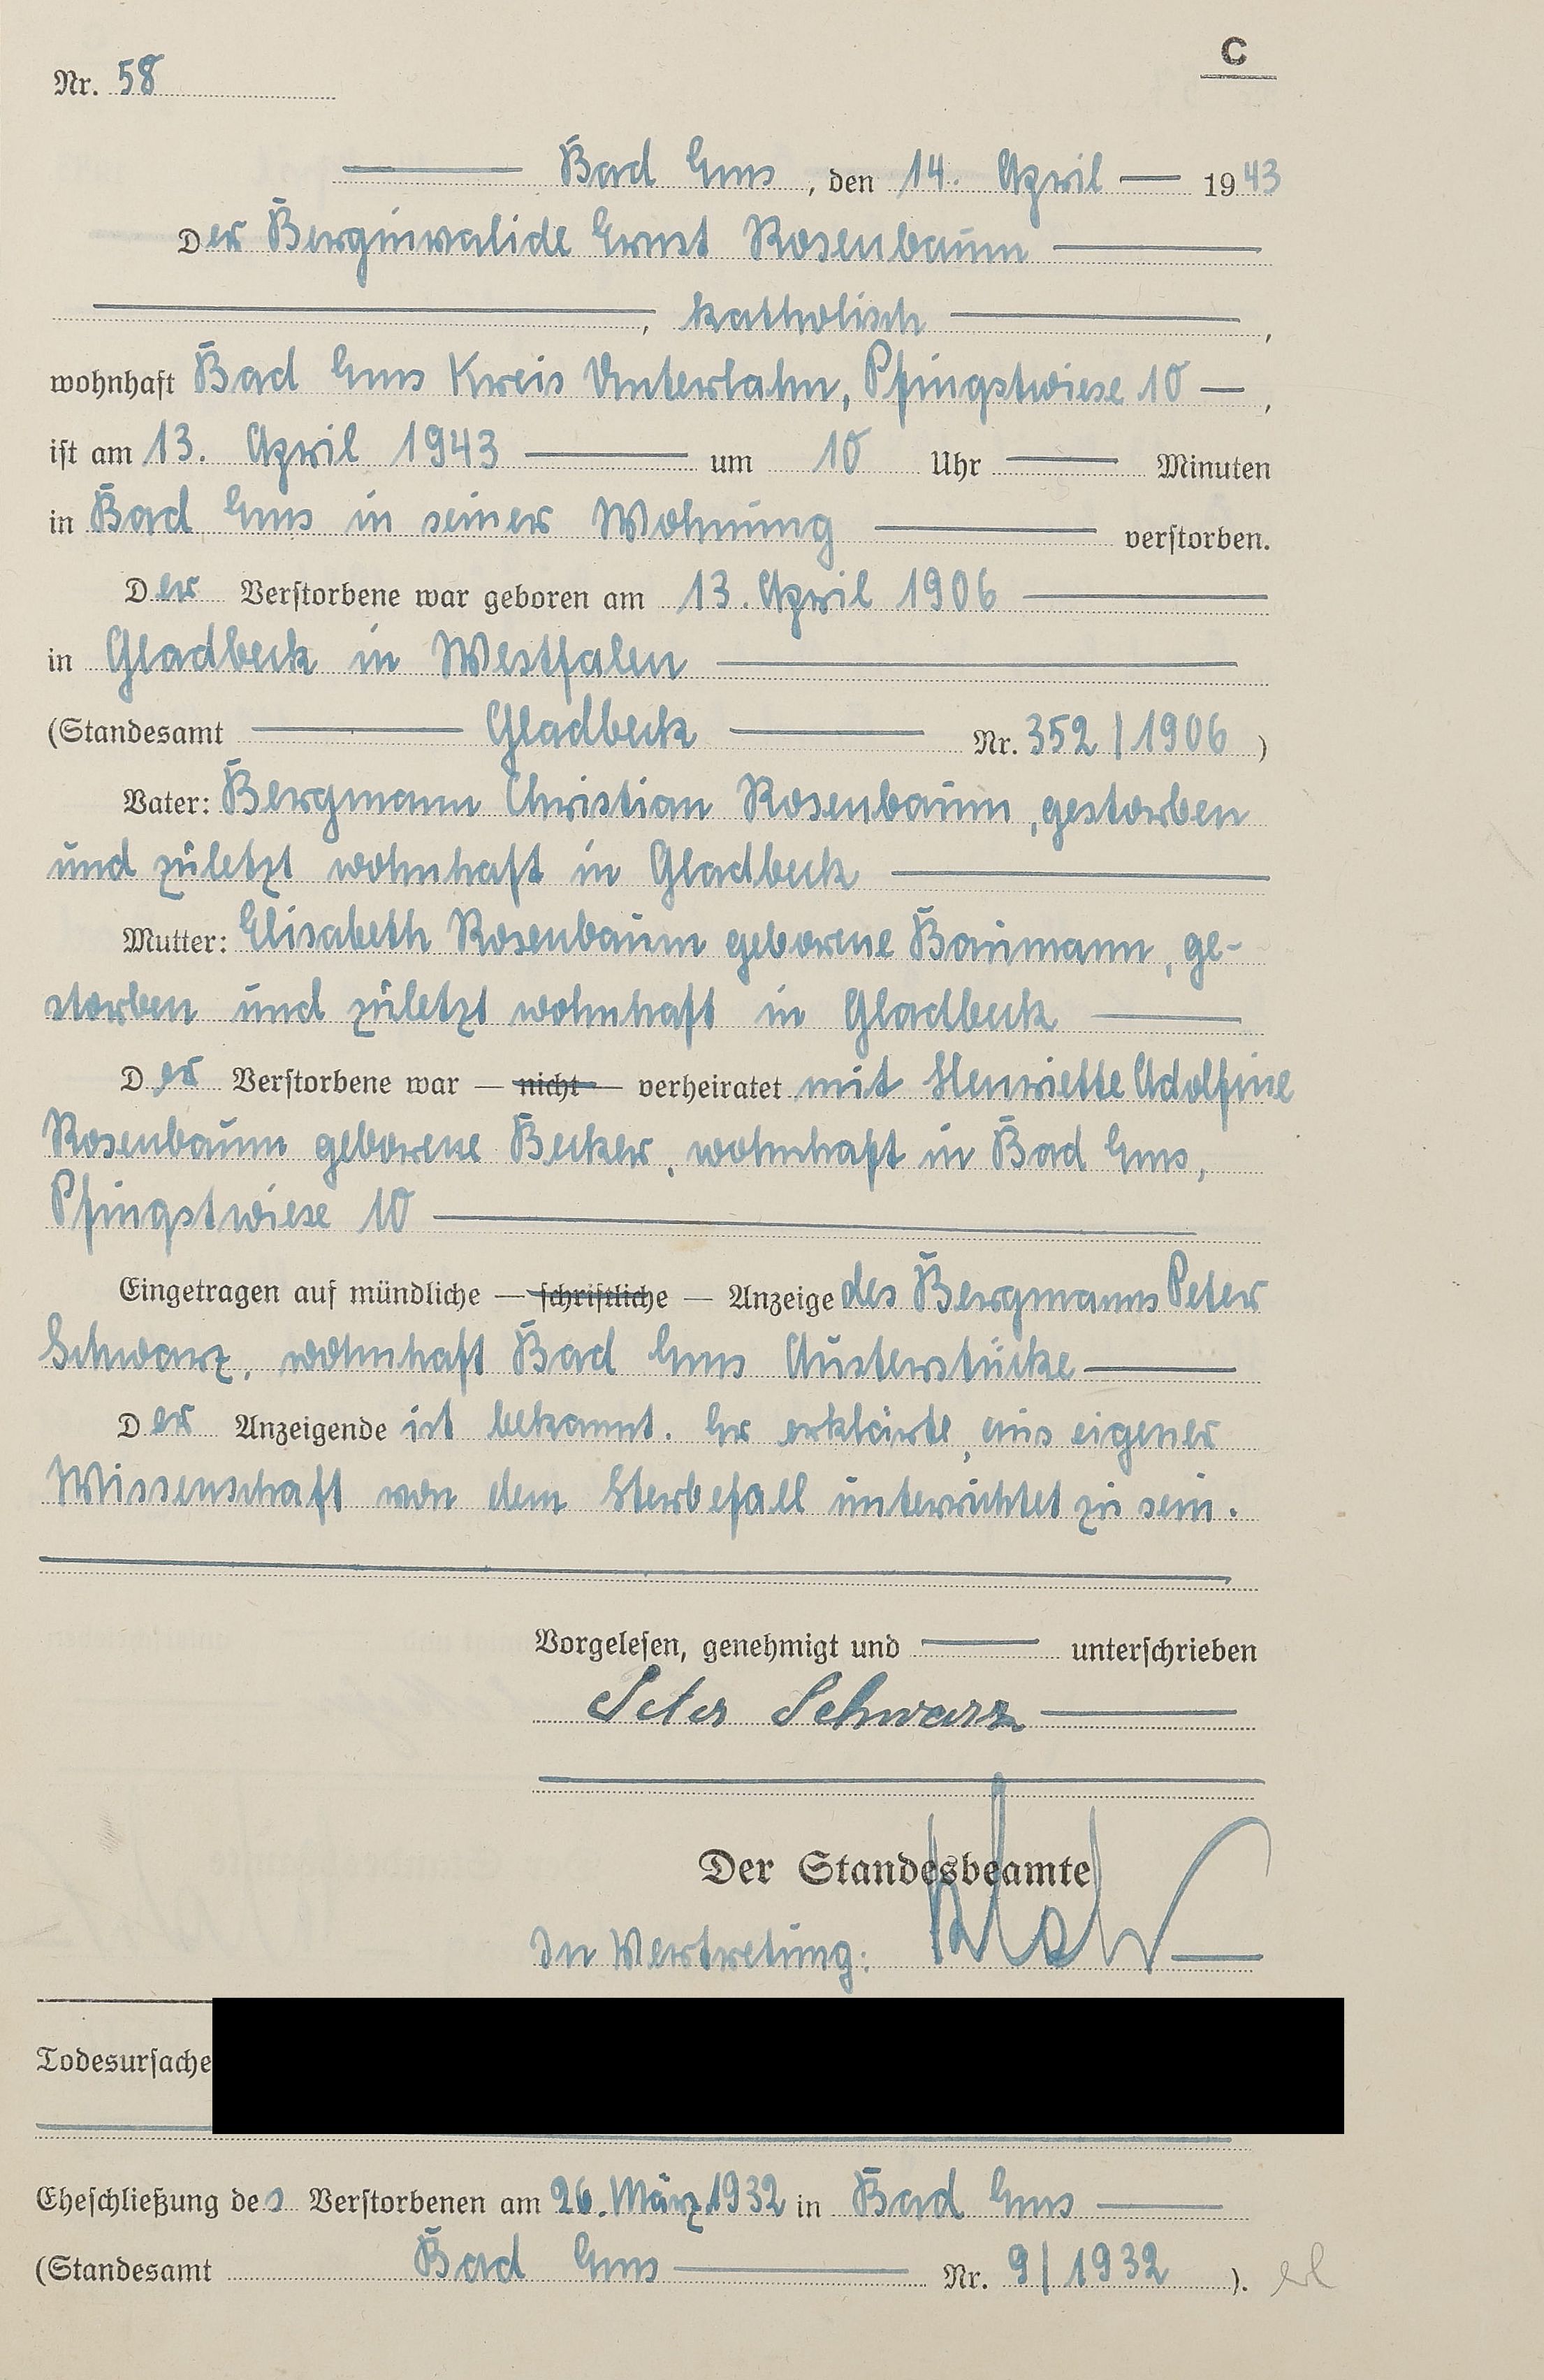 C
Nr. 58
Bad Ems, den 14. April 1943
Der Berginvalide Ernst Rosenbaum
, katholisch,
wohnhaft Bad Ems Kreis Unterlahn, Pfingstwiese 10,
ist am 13. April 1943 um 10 Uhr Minuten
in Bad Ems in seiner Wohnung verstorben.
Der Verstorbene war geboren am 13. April 1906
in Gladbeck in Westfalen
(Standesamt Gladbeck Nr. 352/1906)
Vater: Bergmann Christian Rosenbaum, gestorben
und zuletzt wohnhaft in Gladbeck
Mutter: Elisabeth Rosenbaum geborene Baumann, ge-
storben und zuletzt wohnhaft in Gladbeck
Der Verstorbene war — nicht — verheiratet mit Henriette Adolfine
Rosenbaum geborene Becker, wohnhaft in Bad Ems,
Pfingstwiese 10
Eingetragen auf mündliche — schriftliche — Anzeige des Bergmanns Peter
Schwarz, wohnhaft Bad Ems Austerstücke
Der Anzeigende ist bekannt. Er erklärte, aus eigener
Wissenschaft von dem Sterbefall unterrichtet zu sein.
Vorgelesen, genehmigt und unterschrieben
Peter Schwarz
Der Standesbeamte
In Vertretung:
Todesursache
Eheschließung des Verstorbenen am 26. März 1932 in Bad Ems
(Standesamt Bad Ems Nr. 9/1932).